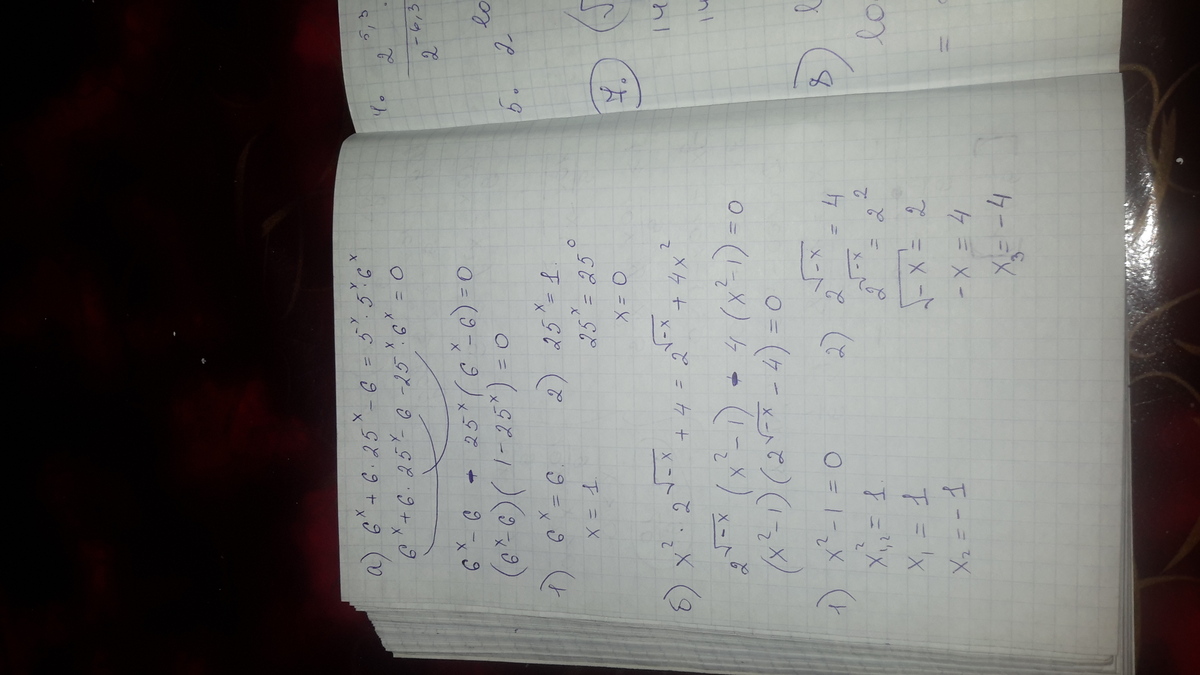 а) 6^x + 6 · 25^x - 6 = 5^x · 5^x · 6^x
6^x + 6 · 25^x - 6 - 25^x · 6^x = 0
6^x - 6 - 25^x (6^x - 6) = 0
(6^x - 6)(1 - 25^x) = 0
1) 6^x = 6.
x = 1
2) 25^x = 1.
25^x = 25^0
x = 0
б) x^2 · 2^√-x + 4 = 2^√-x + 4x^2
2^√-x (x^2 - 1) - 4 (x^2 - 1) = 0
(x^2 - 1)(2^√-x - 4) = 0
1) x^2 - 1 = 0
x^2_1,2 = 1.
x_1 = 1
x_2 = -1
2) 2^√-x = 4
2^√-x = 2^2
√-x = 2
-x = 4
x_3 = -4
4. 2^5,3
2^-6,3
5. 2
lo
7. (5
14
14
8) l
lo
=